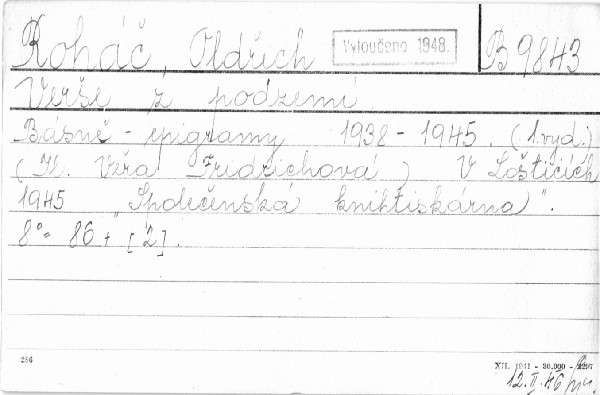 Roháč, Oldřich Vyloučeno 1948. B 9843
Verše z podzemí
Básně - epigramy 1938 - 1945. (1.vyd.)
(Il. Věra Fridrichová) V Lošticích
1945 "Společenská knihtiskárna".
8° = 86 + [2].
286
XII. 1941 - 30.000 - 2297
12. II. 46